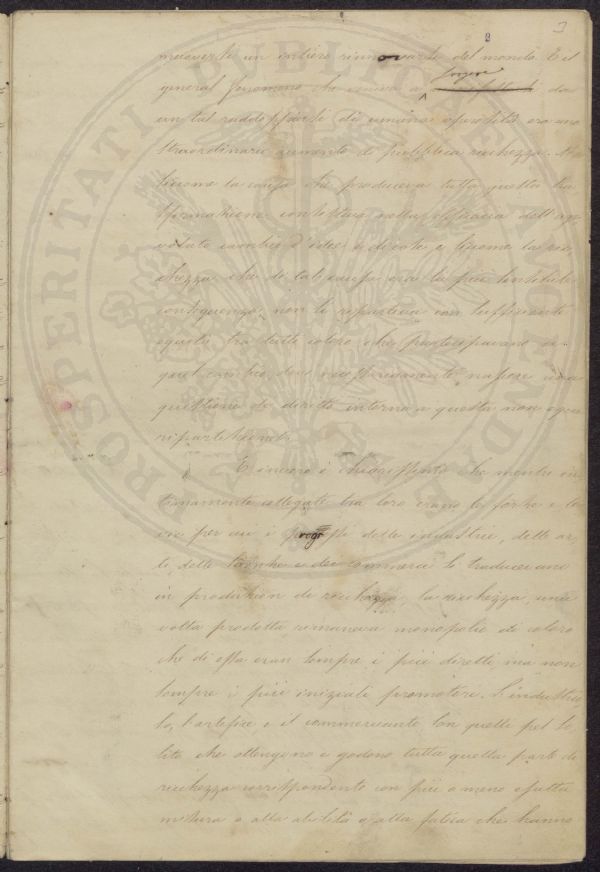 2 3
un intiero rinnovarsi del mondo. E il
general fenomeno che veniva a sorgere da
un tal raddoppiarsi di umana operosità era uno
straordinario aumento di pubblica ricchezza. Ma
siccome la causa che produceva tutta questa tra
sformazione consisteva nella efficacia dell'
cambio d'idee e di cose e siccome la ric
chezza che di tal causa era la più
conseguenza, non si repartiva con sufficiente
equità tra tutti coloro che partecipavano a
quel cambio, dové necessariamente nascere una
questione di diritto intorno a questa non equa
ripartizione.
E invero è chiarissimo che mentre in
timamente collegate tra loro erano le forze e le
vie per cui i progressi delle industrie, delle ar
ti, delle scienze e dei commerci si traducevano
in produzion di ricchezza, la ricchezza, una
volta prodotta rimaneva monopolio di coloro
che di essa eran sempre i più diretti ma non
sempre i più iniziali promotori. L'industria
le, l'artefice e il commerciante son quelli pel so
lito che ottengono e godono tutta quella parte di
ricchezza corrispondente con più o meno esatta
misura o alla abilità o alla fatica che hanno
PROSPERITATI PUBLICAE AUGENDAE